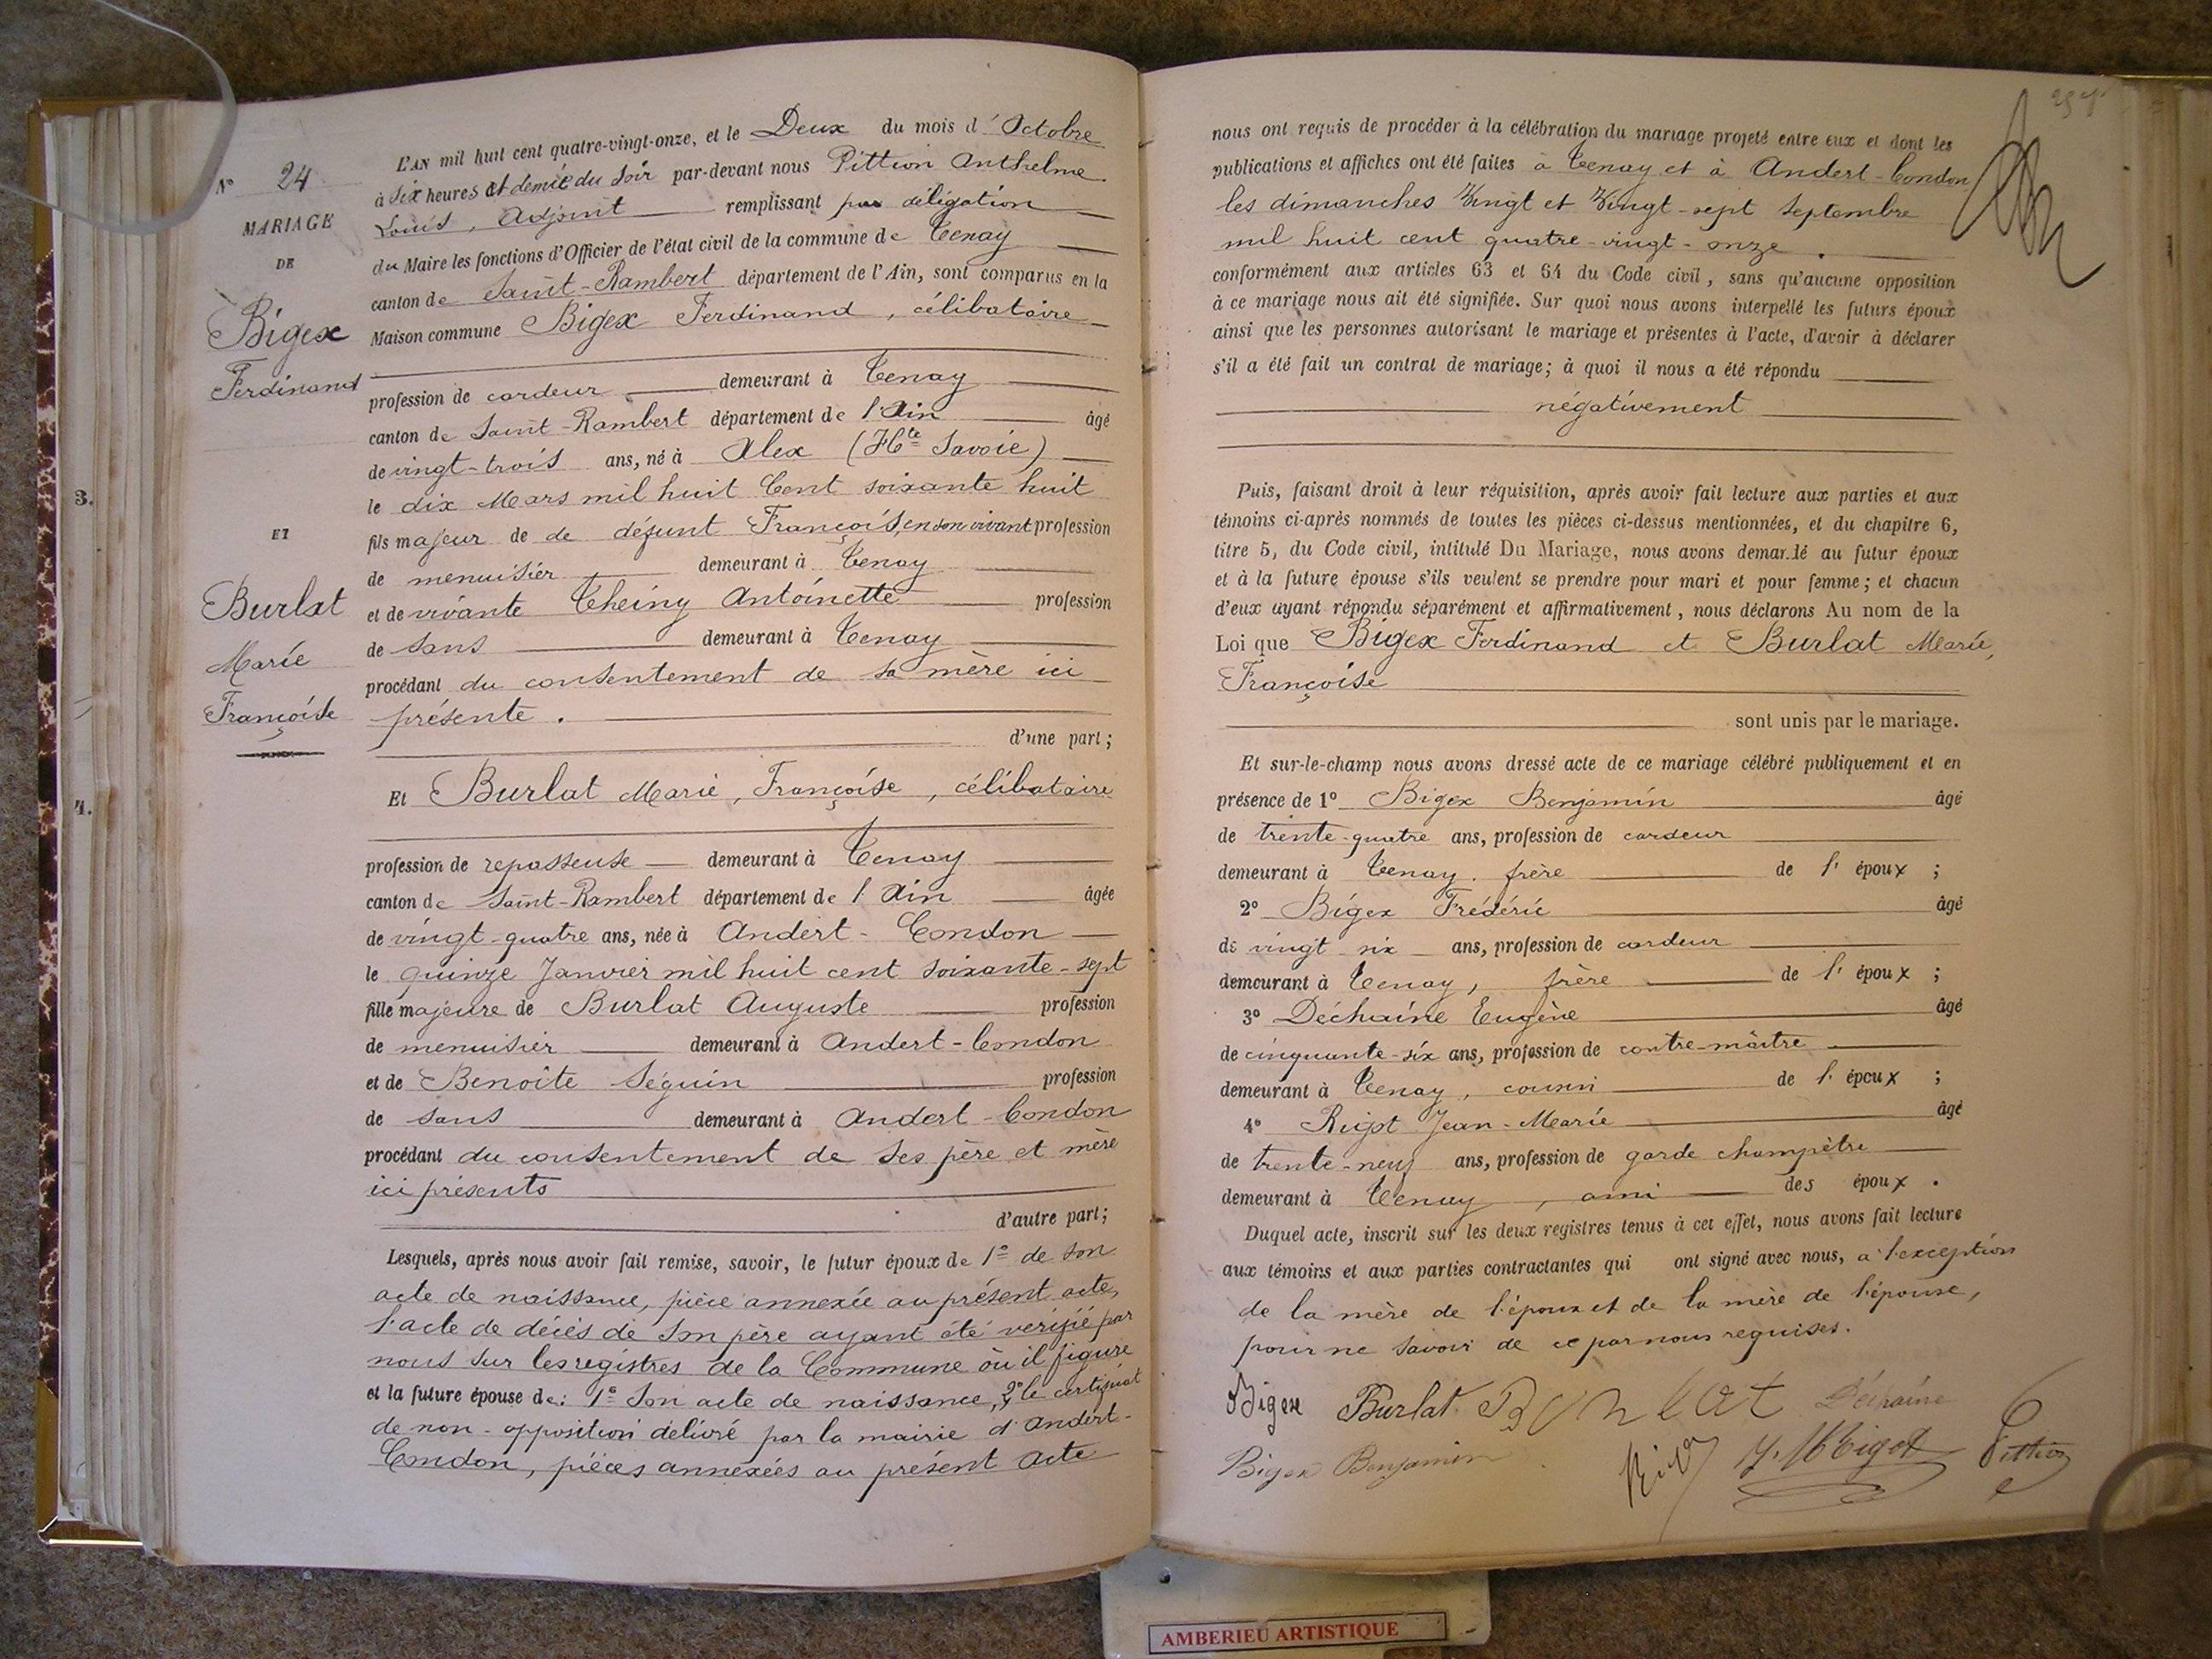 N° 24
MARIAGE
DE
Bigex
Ferdinand
ET
Burlat
Marie
Françoise
3.
4.
L'AN mil huit cent quatre-vingt-onze, et le Deux du mois d'Octobre
à six heures et demie du soir par-devant nous Pittion Anthelme
Louis, Adjoint remplissant par délégation
du Maire les fonctions d'Officier de l'état civil de la commune de Tenay
canton de Saint-Rambert département de l'Ain, sont comparus en la
Maison commune Bigex Ferdinand, célibataire
profession de cardeur demeurant à Tenay
canton de Saint-Rambert département de l'Ain âgé
de vingt-trois ans, né à Alex (Hte Savoie)
le dix Mars mil huit Cent soixante huit
fils majeur de de défunt François, en son vivant profession
de menuisier demeurant à Tenay
et de vivante Theiny Antoinette profession
de sans demeurant à Tenay
procédant du consentement de sa mère ici
présente.
d'une part;
Et Burlat Marie, Françoise, célibataire
profession de repasseuse demeurant à Tenay
canton de Saint-Rambert département de l'Ain âgée
de vingt-quatre ans, née à Andert-Condon
le quinze Janvier mil huit cent soixante-sept
fille majeure de Burlat Auguste profession
de menuisier demeurant à Andert-Condon
et de Benoîte Séguin profession
de sans demeurant à Andert-Condon
procédant du consentement de ses père et mère
ici présents
d'autre part;
Lesquels, après nous avoir fait remise, savoir, le futur époux de 1° de son
acte de naissance, pièce annexée au présent acte,
l'acte de décès de son père ayant été vérifié par
nous sur les registres de la Commune où il figure
et la future épouse de: 1° Son acte de naissance, 2° le certificat
de non-opposition délivré par la mairie d'Andert-
Condon, pièces annexées au présent acte
nous ont requis de procéder à la célébration du mariage projeté entre eux et dont les
publications et affiches ont été faites à Tenay et à Andert-Condon
les dimanches Vingt et Vingt-sept Septembre
mil huit cent quatre-vingt-onze.
conformément aux articles 63 et 64 du Code civil, sans qu'aucune opposition
à ce mariage nous ait été signifiée. Sur quoi nous avons interpellé les futurs époux
ainsi que les personnes autorisant le mariage et présentes à l'acte, d'avoir à déclarer
s'il a été fait un contrat de mariage; à quoi il nous a été répondu
négativement
Puis, faisant droit à leur réquisition, après avoir fait lecture aux parties et aux
témoins ci-après nommés de toutes les pièces ci-dessus mentionnées, et du chapitre 6,
titre 5, du Code civil, intitulé Du Mariage, nous avons demandé au futur époux
et à la future épouse s'ils veulent se prendre pour mari et pour femme; et chacun
d'eux ayant répondu séparément et affirmativement, nous déclarons Au nom de la
Loi que Bigex Ferdinand et Burlat Marie,
Françoise
sont unis par le mariage.
Et sur-le-champ nous avons dressé acte de ce mariage célébré publiquement et en
présence de 1° Bigex Benjamin âgé
de trente-quatre ans, profession de cardeur
demeurant à Tenay. frère de l'époux;
2° Bigex Frédéric âgé
de vingt six ans, profession de cardeur
demeurant à Tenay, frère de l'époux;
3° Déchaîne Eugène âgé
de cinquante-six ans, profession de contre-maître
demeurant à Tenay, cousin de l'époux;
4° Rigot Jean-Marie âgé
de trente-neuf ans, profession de garde champêtre
demeurant à Tenay, ami des époux.
Duquel acte, inscrit sur les deux registres tenus à cet effet, nous avons fait lecture
aux témoins et aux parties contractantes qui ont signé avec nous, à l'exception
de la mère de l'époux et de la mère de l'épouse,
pour ne savoir de ce par nous requises.
Bigex Burlat Burlat Déchaîne
Bigex Benjamin Bigex J. M Rigot Pittion
AMBERIEU ARTISTIQUE